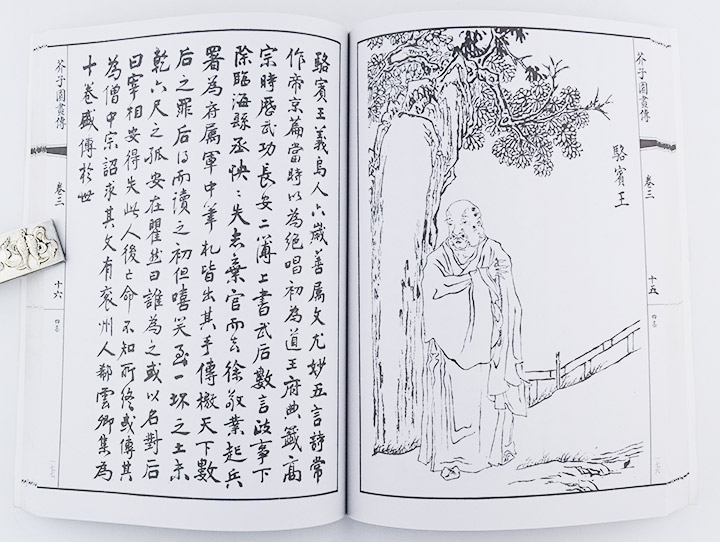 芥子園畫傳
卷三
十五
駱賓王
駱賓王義烏人六歲善属文尤妙五言詩常
作帝京篇當時以為絕唱初為道王府典籤高
宗時歷武功長安二簿上書武后數言政事下
除臨海縣丞怏〻失志棄官而去徐敬業起兵
署為府属軍中筆札皆出其手傳檄天下數
后之罪后得而讀之初但嘻笑至一抔之土未
乾六尺之孤安在瞿然曰誰為之或以名對后
曰宰相安得失此人後亡命不知所終或傳其
為僧中宗詔求其文有兗州人郗雲卿集為
十卷盛傳於世
芥子園畫傳
卷三
十六